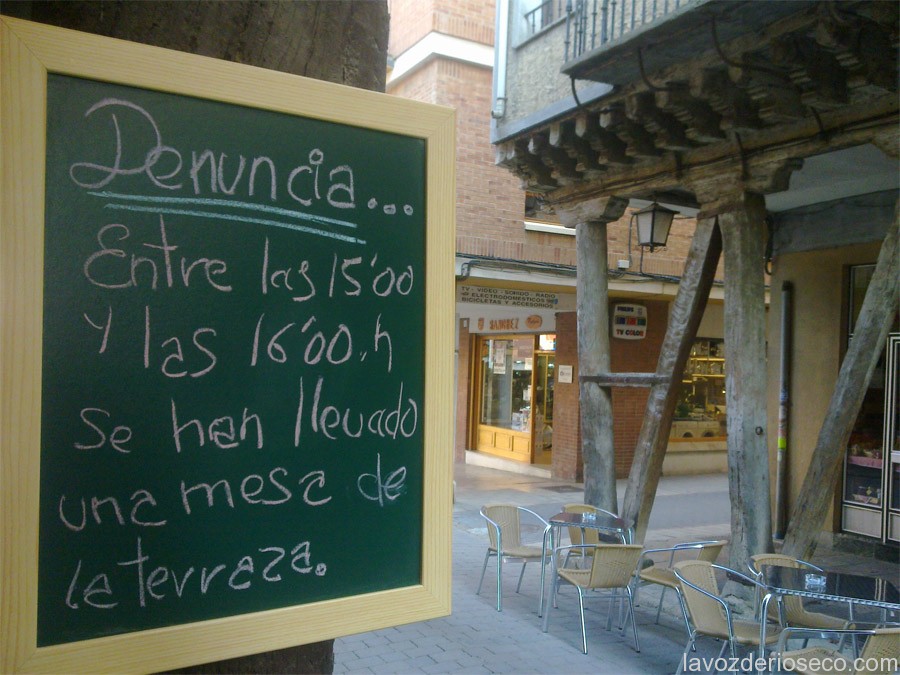 Denuncia...
Entre las 15'00
y las 16'00.h
se han llevado
una mesa de
la terraza.
TV - VIDEO - SONIDO - RADIO
ELECTRODOMESTICOS
BICICLETAS Y ACCESORIOS
SANCHEZ
TV COLOR
lavozderioseco.com